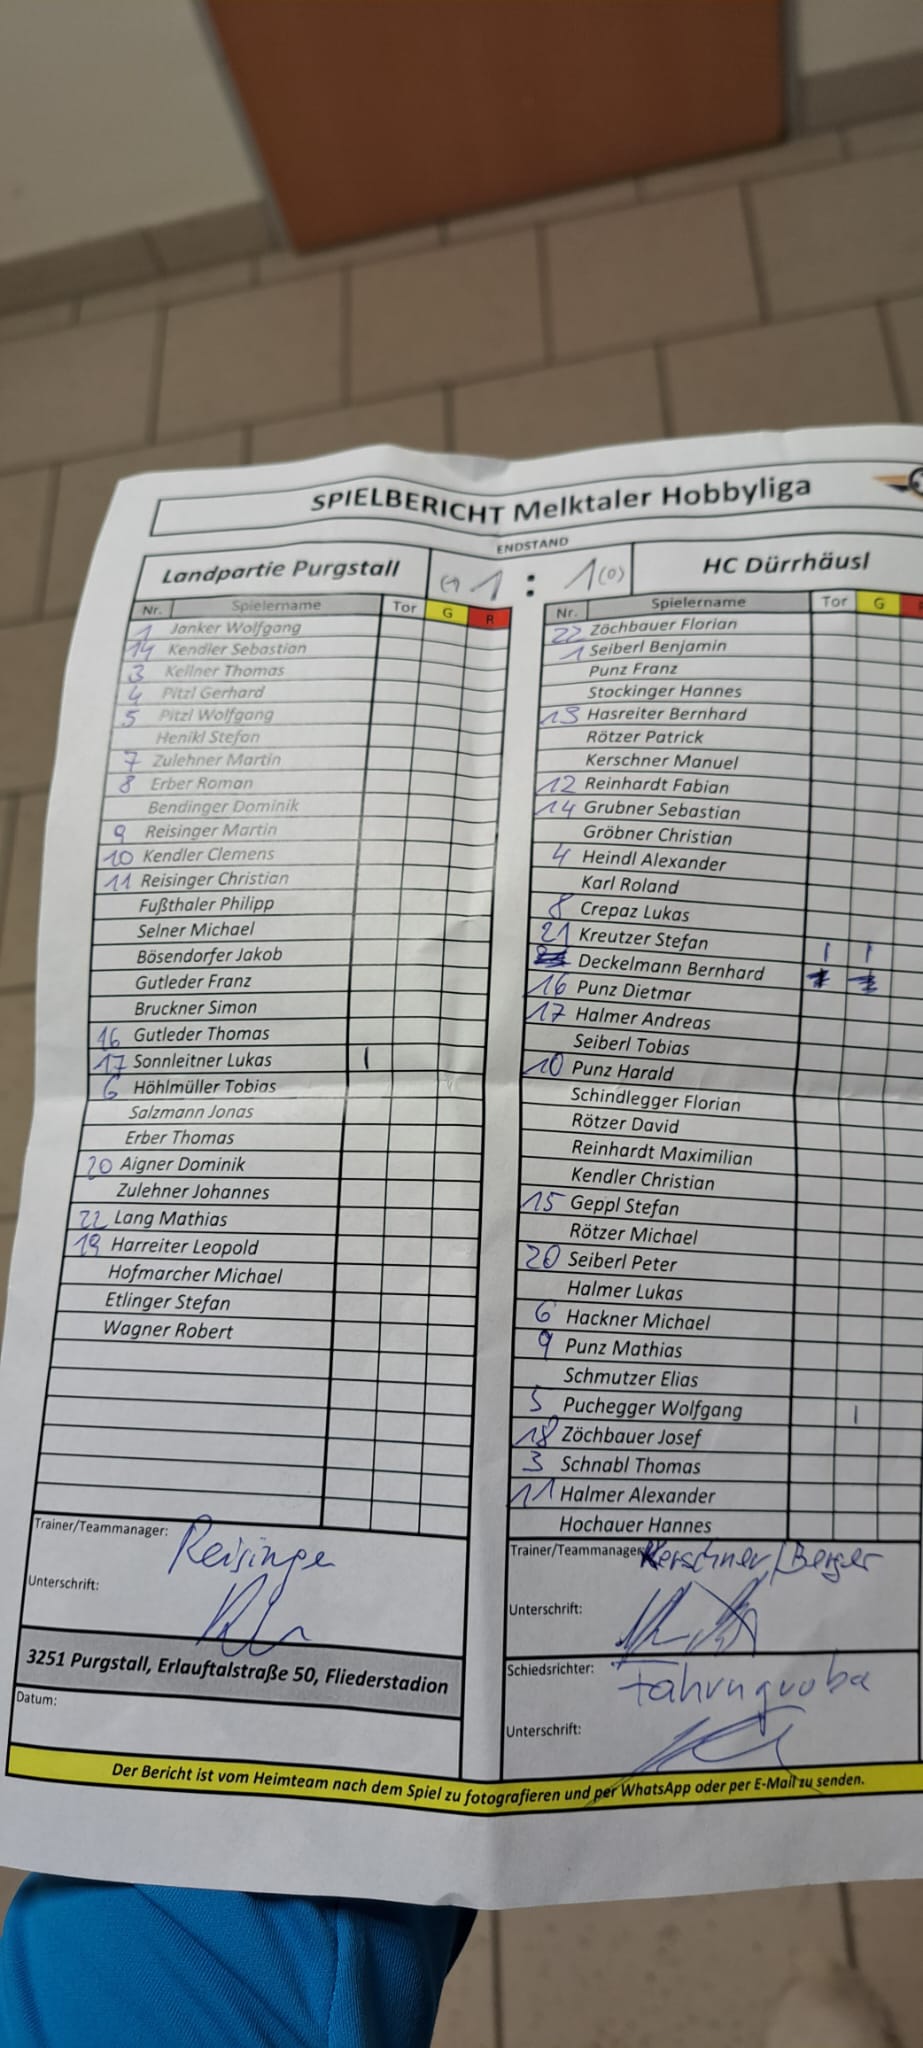 SPIELBERICHT Melktaler Hobbyliga
ENDSTAND
Landpartie Purgstall
(1) 1 : 1 (0)
HC Dürrhäusl
Nr. Spielername Tor G R
1 Janker Wolfgang
14 Kendler Sebastian
3 Kellner Thomas
4 Pitzl Gerhard
5 Pitzl Wolfgang
Henikl Stefan
7 Zulehner Martin
8 Erber Roman
Bendinger Dominik
9 Reisinger Martin
10 Kendler Clemens
11 Reisinger Christian
Fußthaler Philipp
Selner Michael
Bösendorfer Jakob
Gutleder Franz
Bruckner Simon
16 Gutleder Thomas
17 Sonnleitner Lukas I
6 Höhlmüller Tobias
Salzmann Jonas
Erber Thomas
20 Aigner Dominik
Zulehner Johannes
22 Lang Mathias
19 Harreiter Leopold
Hofmarcher Michael
Etlinger Stefan
Wagner Robert
Trainer/Teammanager: Reisinge
Unterschrift:
3251 Purgstall, Erlauftalstraße 50, Fliederstadion
Datum:
Nr. Spielername Tor G R
22 Zöchbauer Florian
1 Seiberl Benjamin
Punz Franz
Stockinger Hannes
13 Hasreiter Bernhard
Rötzer Patrick
Kerschner Manuel
12 Reinhardt Fabian
14 Grubner Sebastian
Gröbner Christian
4 Heindl Alexander
Karl Roland
8 Crepaz Lukas
21 Kreutzer Stefan I I
Deckelmann Bernhard
16 Punz Dietmar
17 Halmer Andreas
Seiberl Tobias
10 Punz Harald
Schindlegger Florian
Rötzer David
Reinhardt Maximilian
Kendler Christian
15 Geppl Stefan
Rötzer Michael
20 Seiberl Peter
Halmer Lukas
6 Hackner Michael
9 Punz Mathias
Schmutzer Elias
5 Puchegger Wolfgang I
18 Zöchbauer Josef
3 Schnabl Thomas
11 Halmer Alexander
Hochauer Hannes
Trainer/Teammanager Kerschner/Berger
Unterschrift:
Schiedsrichter:
Unterschrift:
Der Bericht ist vom Heimteam nach dem Spiel zu fotografieren und per WhatsApp oder per E-Mail zu senden.